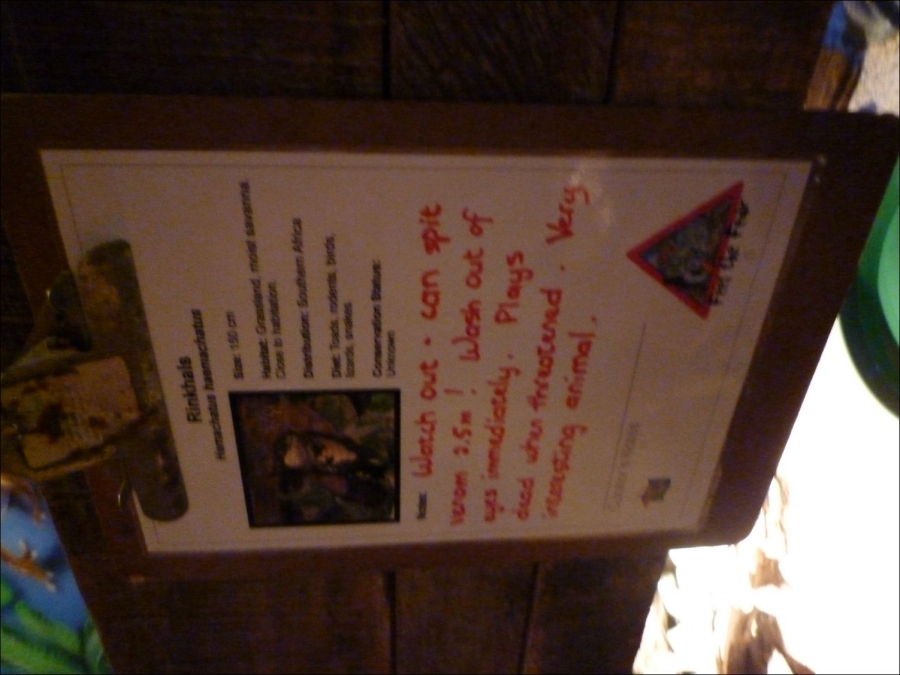 Rinkhals
Hemachatus haemachatus
Size: 150 cm
Habitat: Grassland, moist savanna.
Close to habitation.
Distribution: Southern Africa
Diet: Toads, rodents, birds,
lizards, snakes.
Conservation Status:
Unknown
Notes: Watch out - can spit
venom 2.5m! Wash out of
eyes immediately. Plays
dead when threatened. Very
interesting animal.